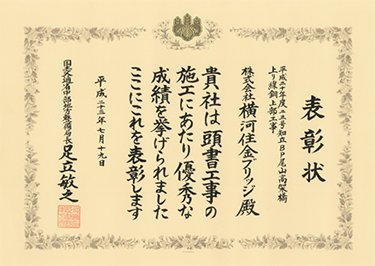 表彰状
平成二十年度二三号知立BP尾山高架橋
上り線鋼上部工事
株式会社横河住金ブリッジ殿
貴社は頭書工事の
施工にあたり優秀な
成績を挙げられました
ここにこれを表彰します
平成二十三年七月十九日
国土交通省中部地方整備局長 足立敏之